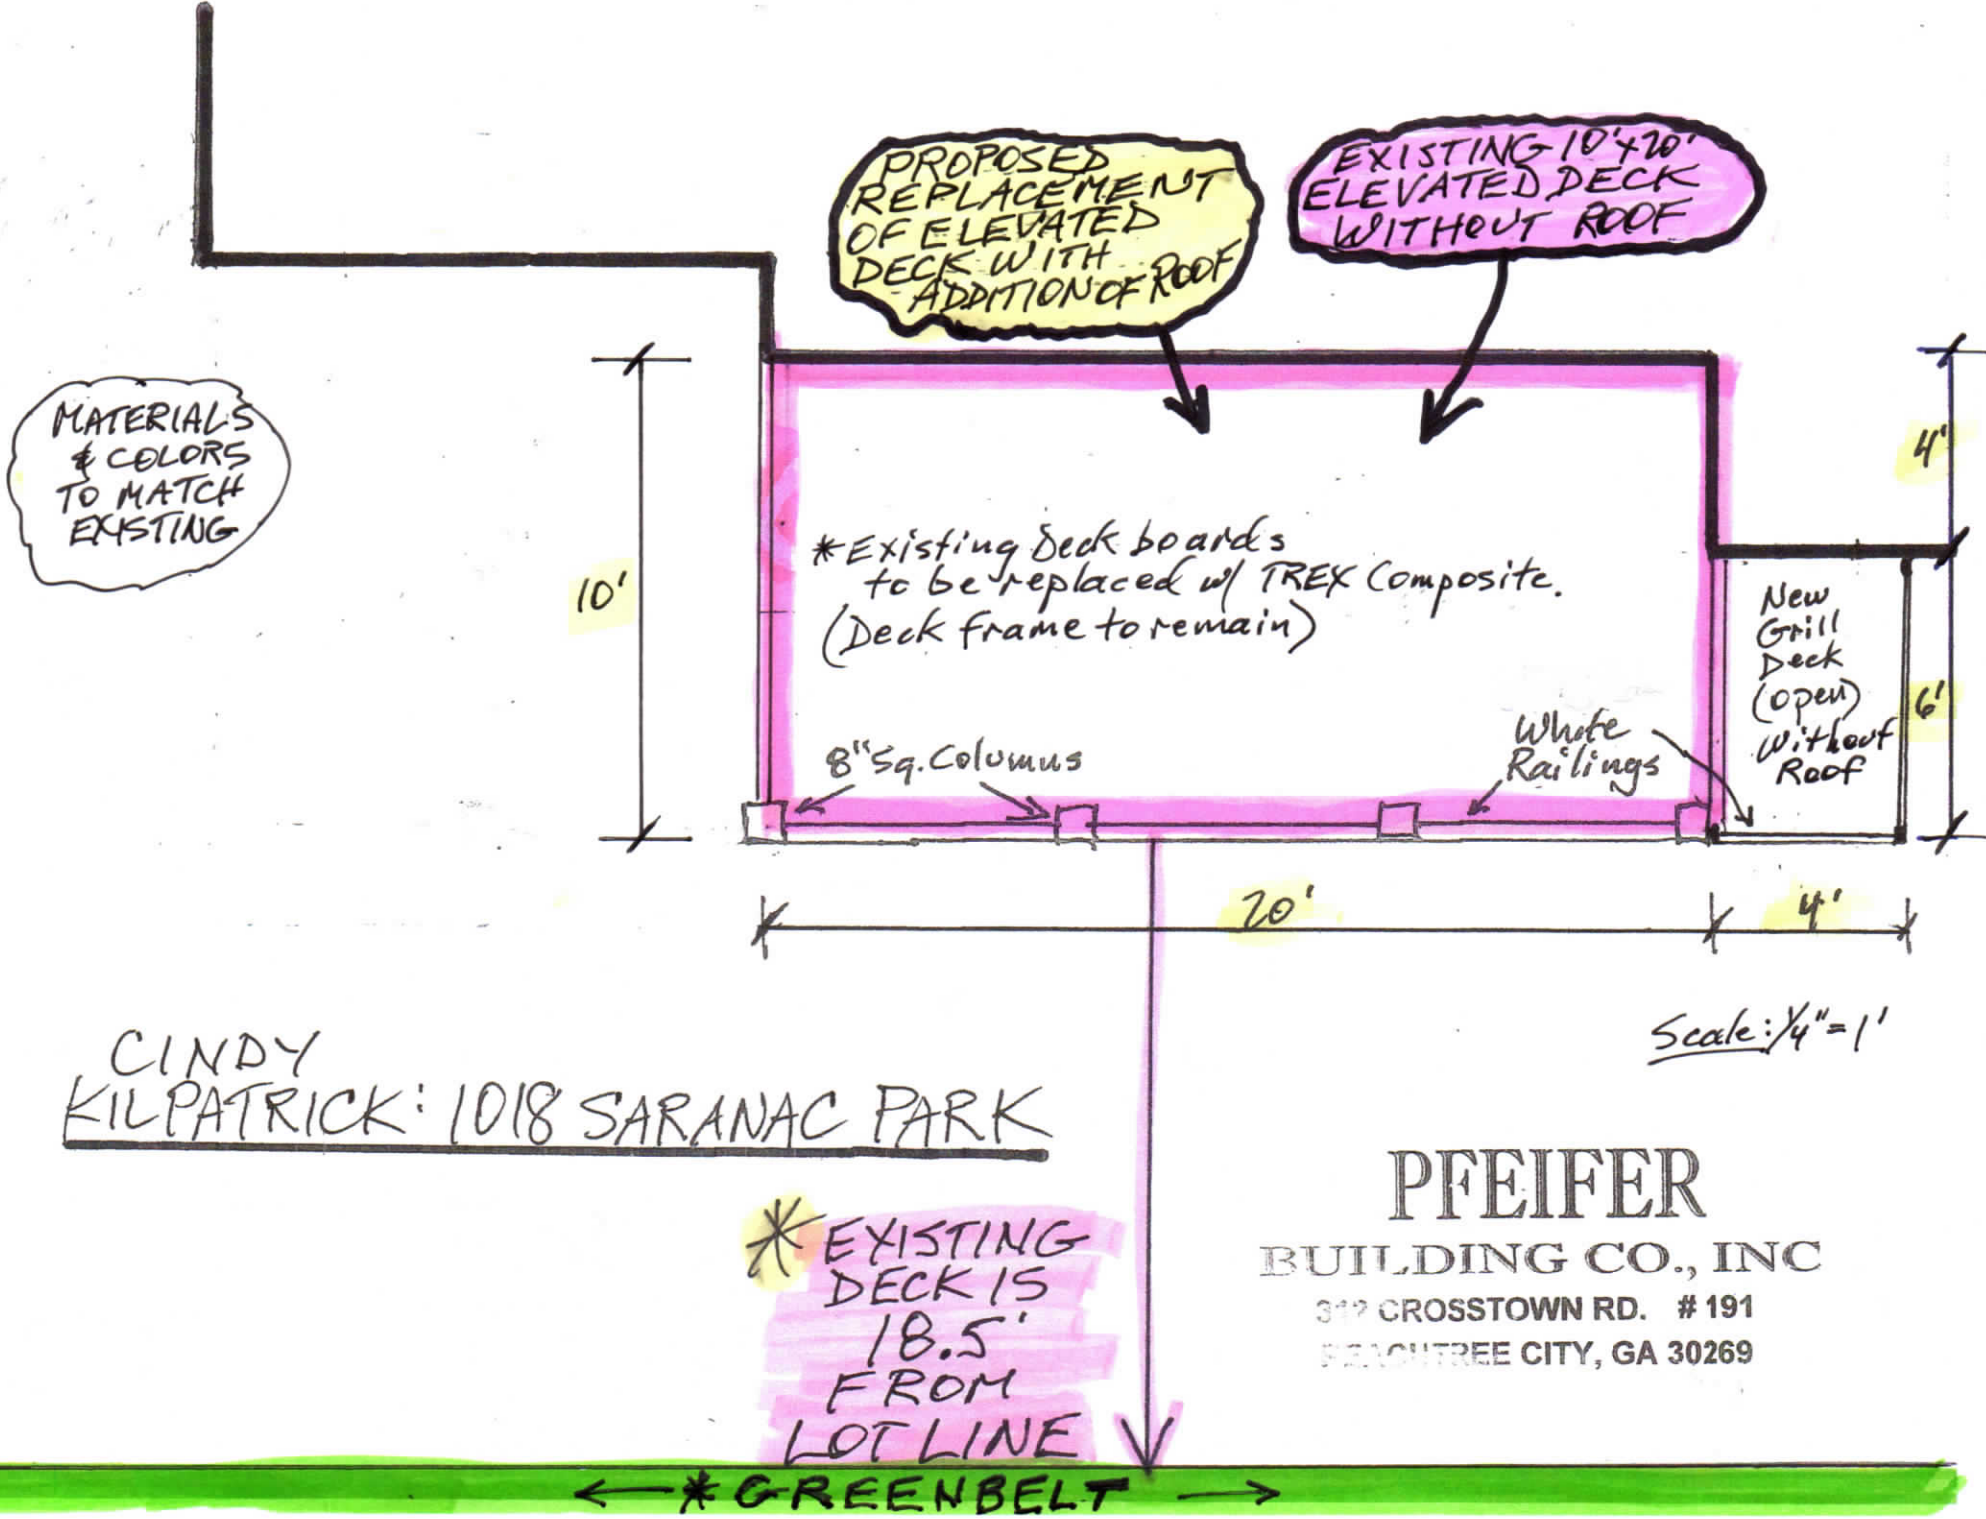 PROPOSED
REPLACEMENT
OF ELEVATED
DECK WITH
ADDITION OF ROOF
EXISTING 10'x20'
ELEVATED DECK
WITHOUT ROOF
MATERIALS
& COLORS
TO MATCH
EXISTING
4'
10'
*Existing Deck boards
to be replaced w/ TREX Composite.
(Deck frame to remain)
New
Grill
Deck
(open)
Without
Roof
6'
8" Sq. Columns
White
Railings
20'
4'
Scale: 1/4" = 1'
CINDY
KILPATRICK: 1018 SARANAC PARK
* EXISTING
DECK IS
18.5'
FROM
LOT LINE
PFEIFER
BUILDING CO., INC
312 CROSSTOWN RD. # 191
PEACHTREE CITY, GA 30269
← * GREENBELT →